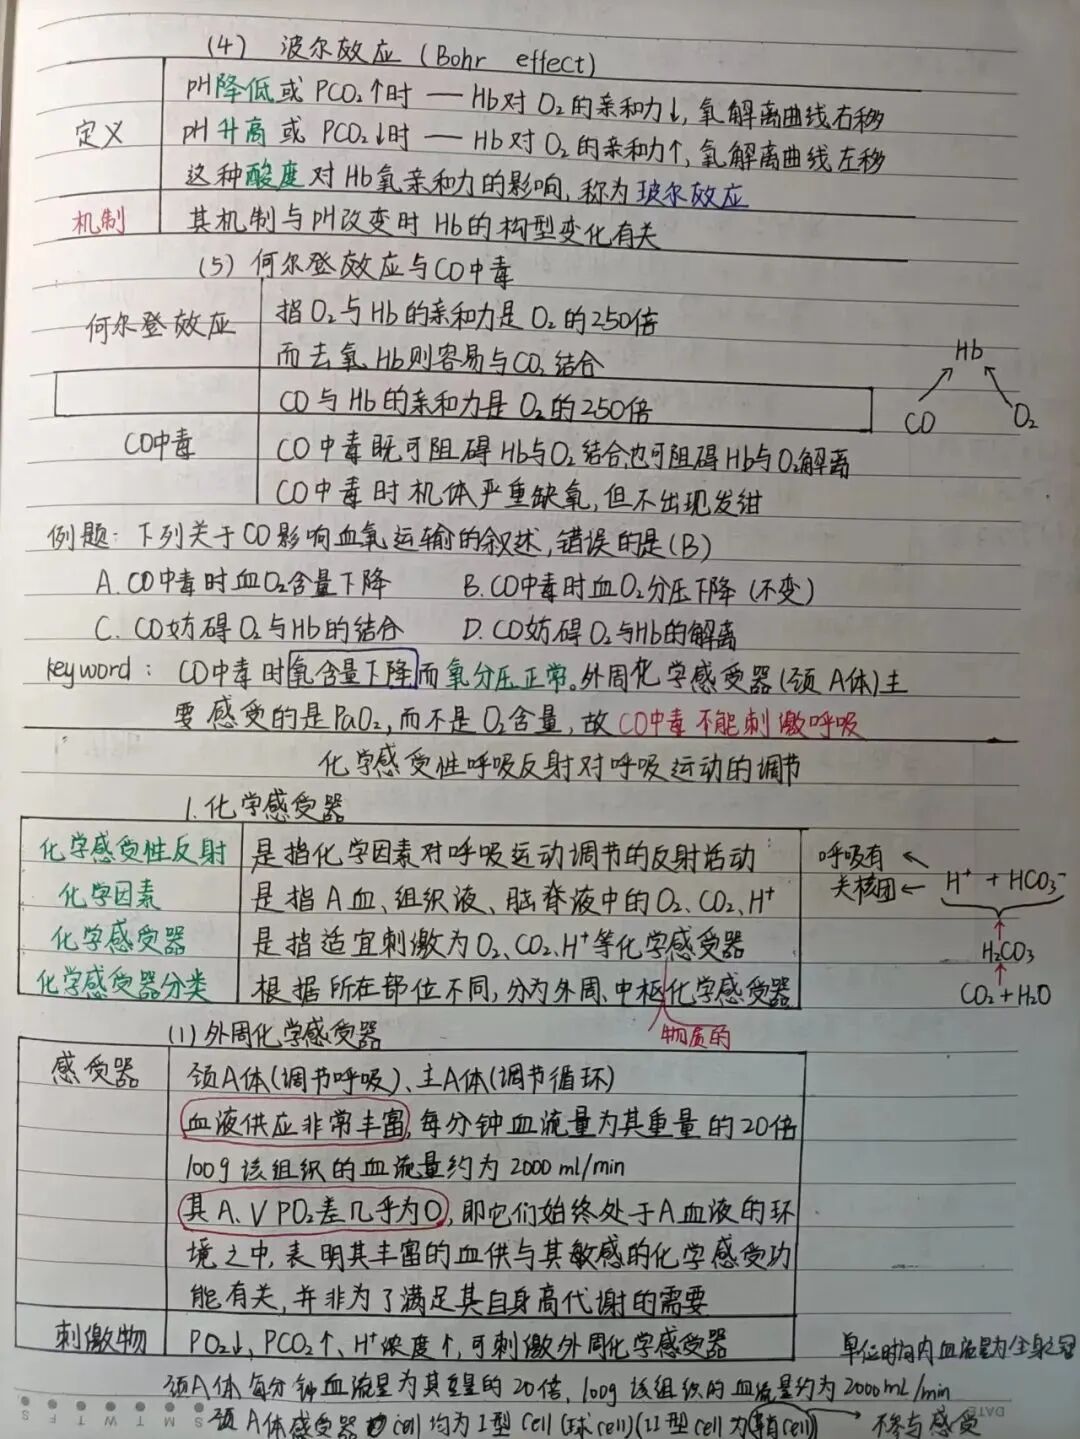 (4) 波尔效应 (Bohr effect)
定义 pH降低或 PCO₂↑时 — Hb对O₂的亲和力↓, 氧解离曲线右移
pH升高或 PCO₂↓时 — Hb对O₂的亲和力↑, 氧解离曲线左移
这种酸度对Hb氧亲和力的影响、称为玻尔效应
机制 其机制与pH改变时 Hb的构型变化有关
(5) 何尔登效应与CO中毒
何尔登效应 指O₂与Hb的亲和力是O₂的250倍
而去氧Hb则容易与CO₂结合
CO与Hb的亲和力是O₂的250倍
CO中毒 CO中毒既可阻碍Hb与O₂结合也可阻碍Hb与O₂解离
CO中毒时机体严重缺氧, 但不出现发绀
Hb
CO O₂
例题: 下列关于CO影响血氧运输的叙述, 错误的是(B)
A. CO中毒时血O₂含量下降 B. CO中毒时血O₂分压下降 (不变)
C. CO妨碍O₂与Hb的结合 D. CO妨碍O₂与Hb的解离
keyword: CO中毒时氧含量下降而氧分压正常。外周化学感受器(颈A体)主
要感受的是PaO₂, 而不是O₂含量, 故CO中毒不能刺激呼吸
化学感受性呼吸反射对呼吸运动的调节
1. 化学感受器
化学感受性反射 是指化学因素对呼吸运动调节的反射活动
化学因素 是指A血、组织液、脑脊液中的O₂、CO₂、H⁺
化学感受器 是指适宜刺激为O₂、CO₂、H⁺等化学感受器
化学感受器分类 根据所在部位不同, 分为外周、中枢化学感受器
物质的
呼吸有
关核团 ← H⁺ + HCO₃⁻
H₂CO₃
CO₂+H₂O
(1) 外周化学感受器
感受器 颈A体(调节呼吸)、主A体(调节循环)
血液供应非常丰富, 每分钟血流量为其重量的20倍
100g该组织的血流量约为2000ml/min
其A、V PO₂差几乎为0, 即它们始终处于A血液的环
境之中, 表明其丰富的血供与其敏感的化学感受功
能有关, 并非为了满足其自身高代谢的需要
刺激物 PO₂↓, PCO₂↑、H⁺浓度↑, 可刺激外周化学感受器
单位时间内血流量为全身之冠
颈A体每分钟血流量为其重量的20倍, 100g该组织的血流量约为2000mL/min
颈A体感受器cell均为I型cell(球cell)(II型cell为鞘cell) → 不参与感受
S M T W T F S
DATE